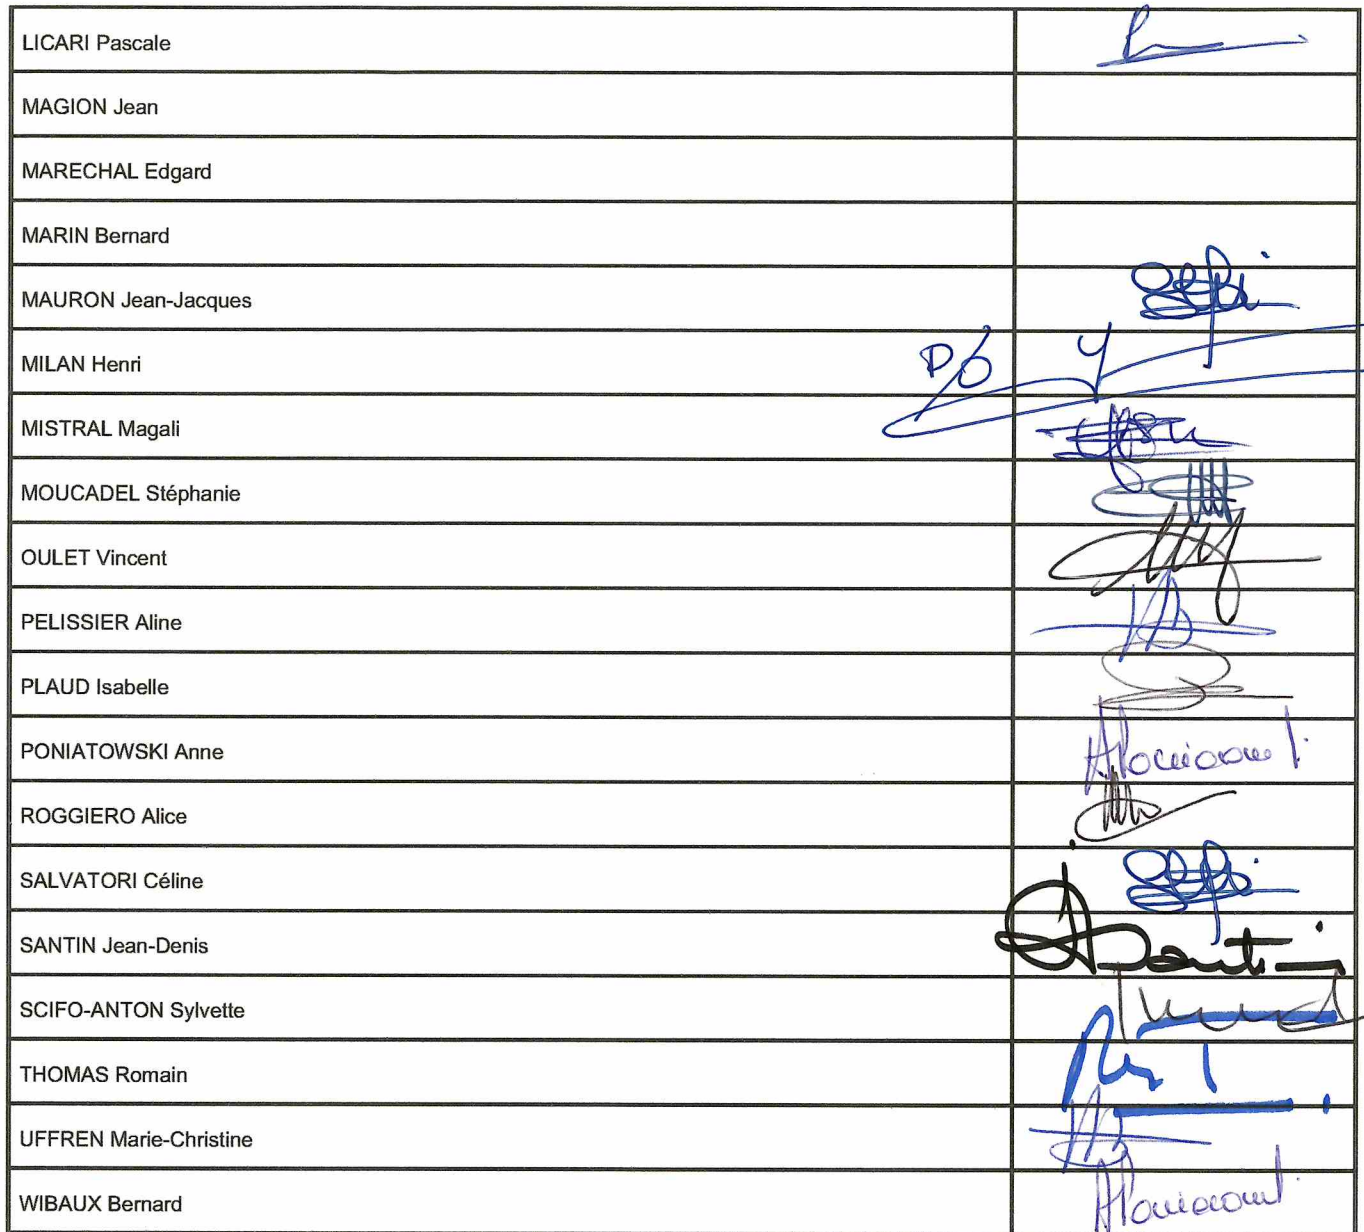 LICARI Pascale
MAGION Jean
MARECHAL Edgard
MARIN Bernard
MAURON Jean-Jacques
MILAN Henri P/O
MISTRAL Magali
MOUCADEL Stéphanie
OULET Vincent
PELISSIER Aline
PLAUD Isabelle
PONIATOWSKI Anne
ROGGIERO Alice
SALVATORI Céline
SANTIN Jean-Denis Santin
SCIFO-ANTON Sylvette
THOMAS Romain
UFFREN Marie-Christine
WIBAUX Bernard